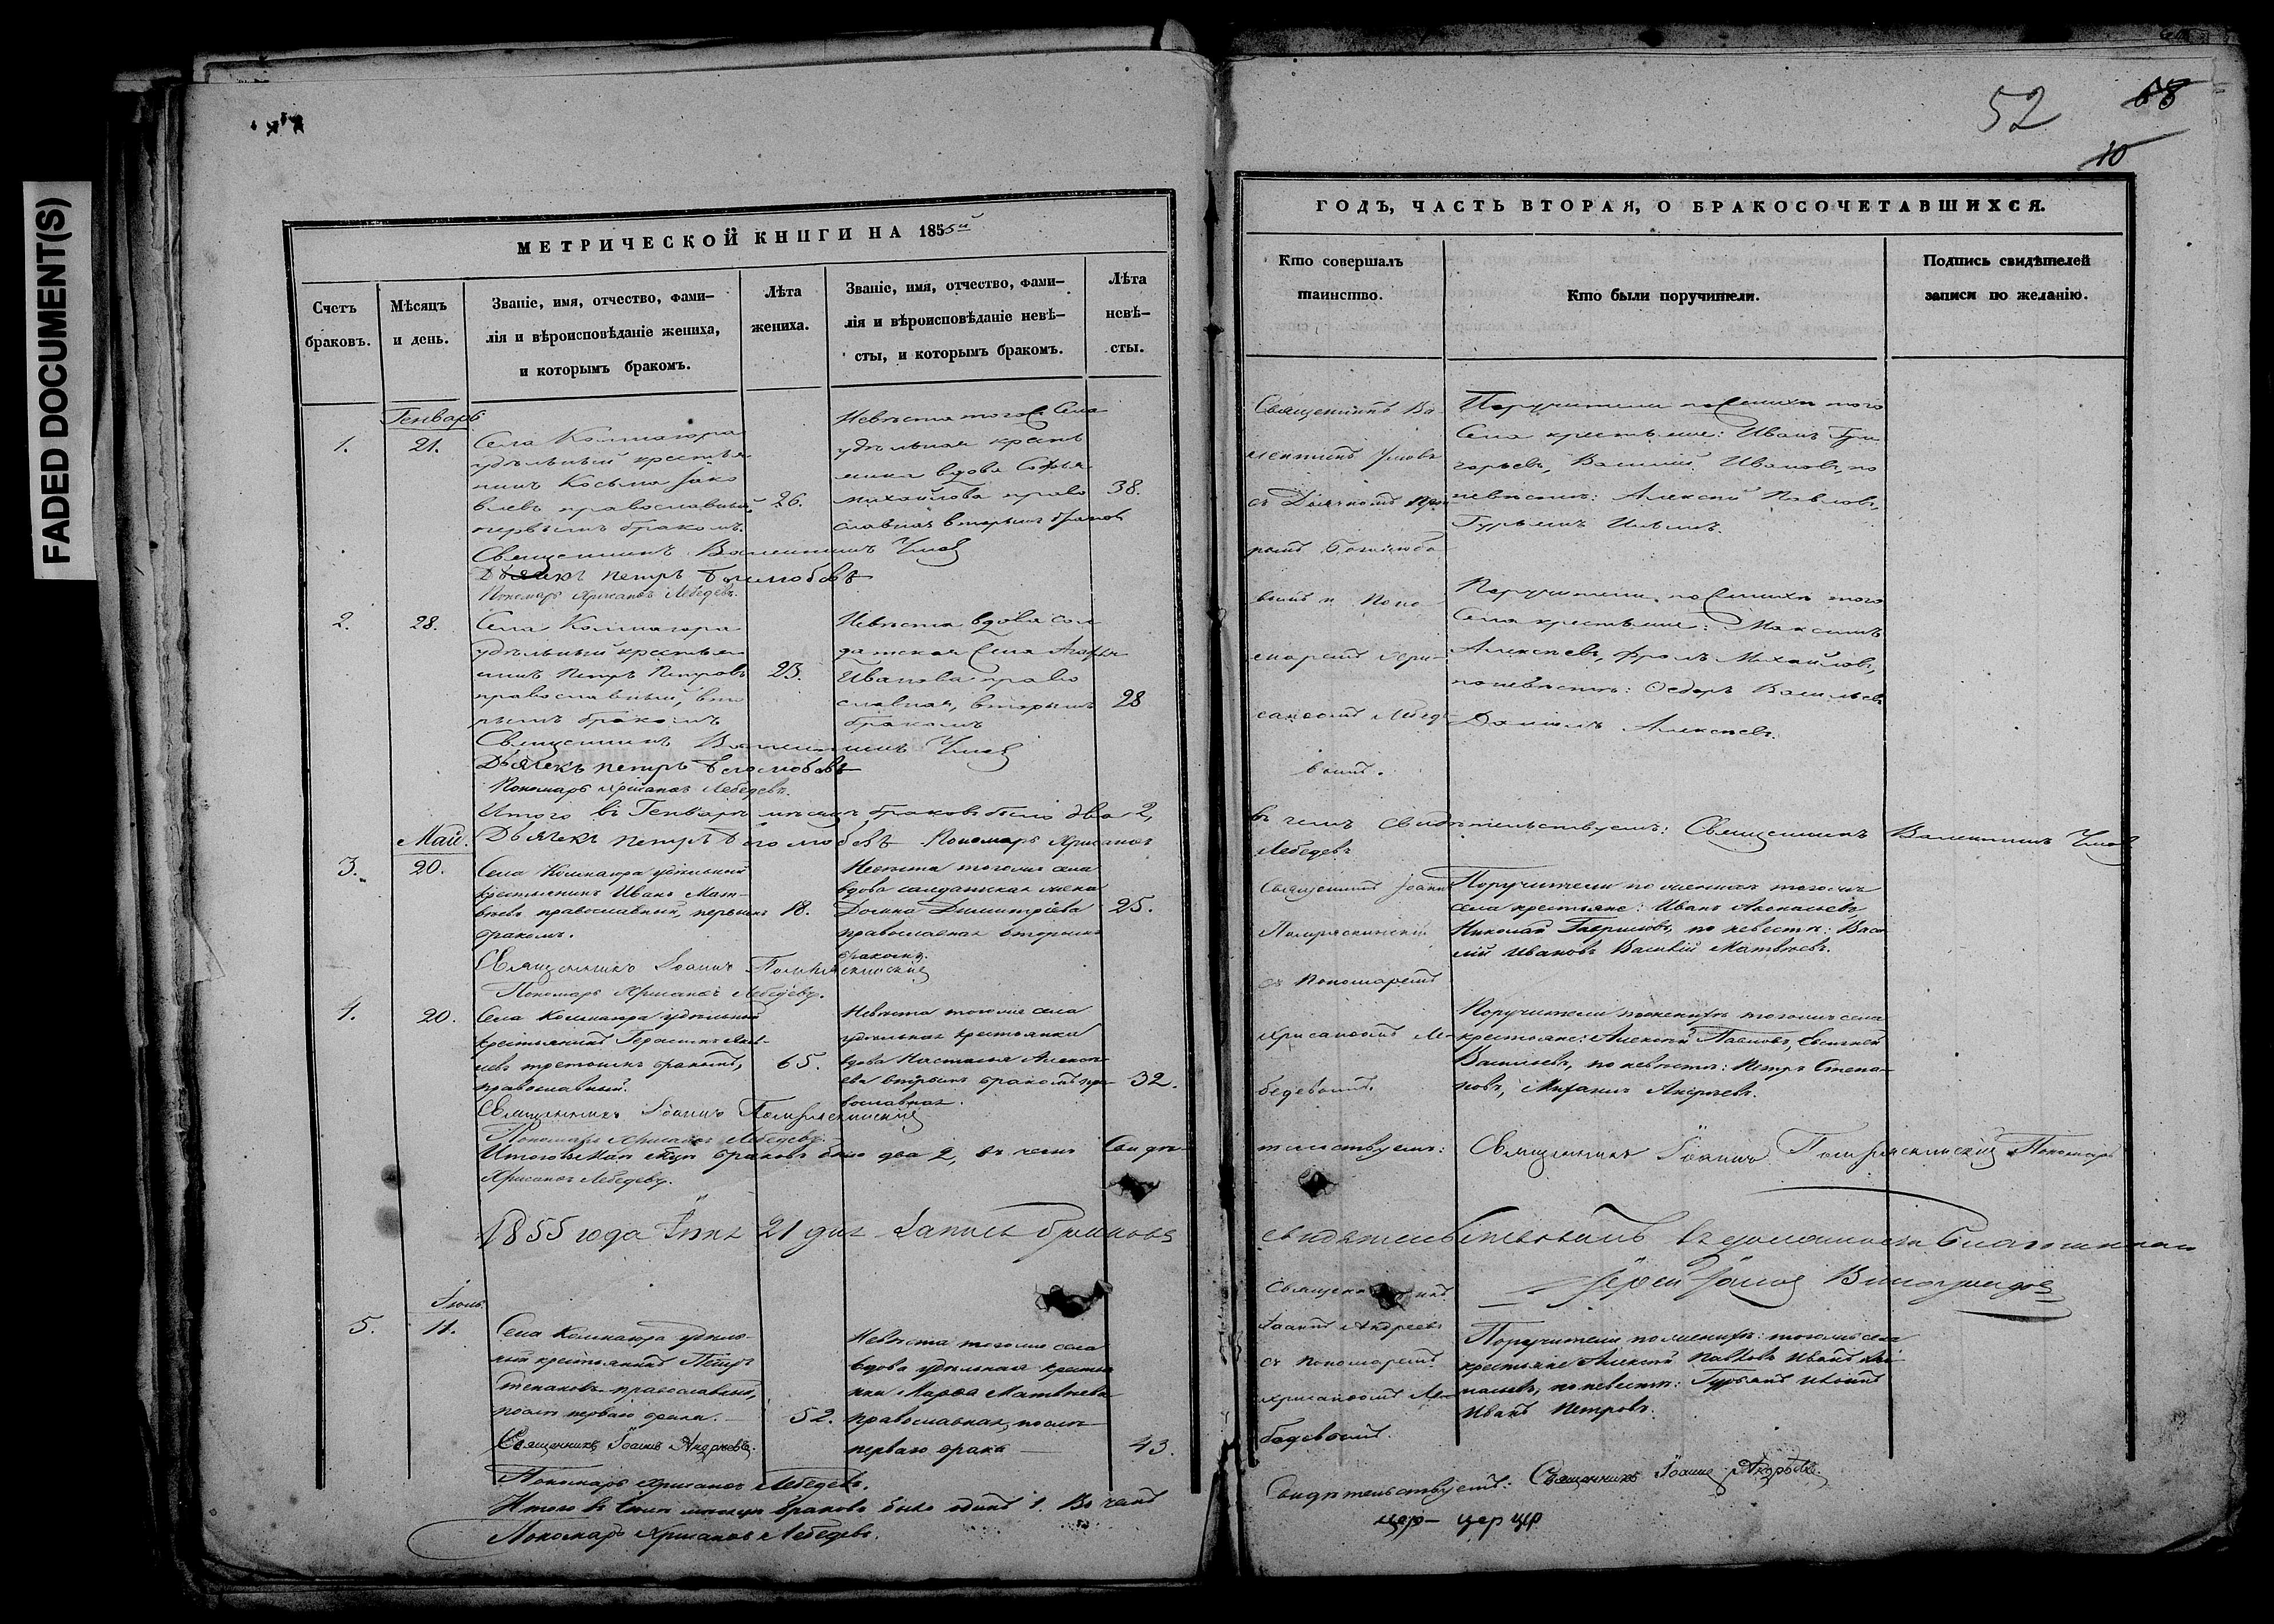 FADED DOCUMENT(S)
52
68
10
МЕТРИЧЕСКОЙ КНИГИ НА 1855й
Счетъ
браковъ.
Мѣсяцъ
и день.
Званіе, имя, отчество, фами-
лія и вѣроисповѣданіе жениха,
и которымъ бракомъ.
Лѣта
жениха.
Званіе, имя, отчество, фами-
лія и вѣроисповѣданіе невѣ-
сты, и которымъ бракомъ.
Лѣта
невѣ-
сты.
Генварь
1.
21.
Села
удѣльный крестья
нинъ Косьма Іако
влевъ православный
первымъ бракомъ.
26.
Невѣста того Села
удѣльная крестья
нка вдова Софья
Михайлова право
славная вторымъ бракомъ
38.
Священникъ Валентинъ
Дьячекъ Петръ Боголюбовъ
Пономарь Хрисанѳъ Лебедевъ.
2.
28.
Села
удѣльный крестья
нинъ Петръ Петровъ
православный, вто
рымъ бракомъ
23.
Невѣста вдова сол
датская Села Агафья
Иванова право
славная, вторымъ
бракомъ
28
Священникъ Валентинъ
Дьячекъ Петръ Боголюбовъ
Пономарь Хрисанѳъ Лебедевъ.
Итого въ Генварѣ мѣсяцѣ браковъ было два 2,
Дьячекъ Петръ Боголюбовъ Пономарь Хрисанѳъ
Май.
3.
20.
Села удѣльный
крестьянинъ Иванъ Мат-
вѣевъ православный, первымъ
бракомъ.
18.
Невѣста тогожъ села
вдова солдатская жена
Домна Димитріева
православная вторымъ
бракомъ.
25.
Священникъ Іоаннъ
Пономарь Хрисанѳъ Лебедевъ.
4.
20.
Села удѣльный
крестьянинъ Герасимъ
третьимъ бракомъ,
православный.
65.
Невѣста тогожъ села
удѣльная крестьянка
вдова Настасья Алексѣ-
ева вторымъ бракомъ пра-
вославная.
32.
Священникъ Іоаннъ
Пономарь Хрисанѳъ Лебедевъ.
Итого въ Маѣ мѣсяцѣ браковъ было два 2, въ чемъ Свидѣ-
Хрисанѳъ Лебедевъ.
1855 года Іюня 21 дня Запись браковъ
Іюнь.
5.
11.
Села удѣль-
ный крестьянинъ Петръ
Степановъ православный,
послѣ перваго брака.
52.
Невѣста тогожъ села
вдова удѣльная крестья
нка Марѳа Матвѣева
православная, послѣ
перваго брака
43.
Священникъ Іоаннъ Андреевъ.
Пономарь Хрисанѳъ Лебедевъ.
Итого въ Іюнѣ мѣсяцѣ браковъ было одинъ 1. Въ чемъ
Пономарь Хрисанѳъ Лебедевъ.
ГОДЪ, ЧАСТЬ ВТОРАЯ, О БРАКОСОЧЕТАВШИХСЯ.
Кто совершалъ
таинство.
Кто были поручители.
Подпись свидѣтелей
записи по желанію.
Священникъ Ва-
лентинъ
съ Дьячкомъ Пет
ромъ Боголюбо
вымъ и Поно
маремъ Хри-
санѳомъ Лебеде
вымъ.
Поручители по женихѣ того
Села крестьяне: Иванъ Гри
горьевъ, Василій Ивановъ, по
невѣстѣ: Алексѣй Павловъ,
Гурьянъ
Поручители по женихѣ того
Села крестьяне: Максимъ
Алексѣевъ, Фролъ Михайловъ,
по невѣстѣ: Ѳедоръ Васильевъ
Даніилъ Алексѣевъ.
въ чемъ свидѣтельствуемъ: Священникъ Валентинъ
Лебедевъ
Священникъ Іоаннъ
съ Пономаремъ
Хрисанѳомъ Ле-
бедевымъ.
Поручители по женихѣ тогожъ
села крестьяне: Иванъ
Николай Гавриловъ, по невѣстѣ: Васи
лій Ивановъ Василій Матвѣевъ.
Поручители по женихѣ тогожъ села
крестьяне: Алексѣй Павловъ, Евгеній
Васильевъ, по невѣстѣ: Петръ Степа-
новъ, Михаилъ Андреевъ.
тельствуемъ: Священникъ Іоаннъ Пономарь
свидѣтельствовалъ въ должности Благочиннаго
Іерей Виноградовъ
Священникъ
Іоаннъ Андреевъ
съ Пономаремъ
Хрисанѳомъ Ле-
бедевымъ.
Поручители по женихѣ: тогожъ села
крестьяне Алексѣй Павловъ Иванъ
по невѣстѣ: Гурьянъ
Иванъ Петровъ.
Свидѣтельствуемъ: Священникъ Іоаннъ Андреевъ